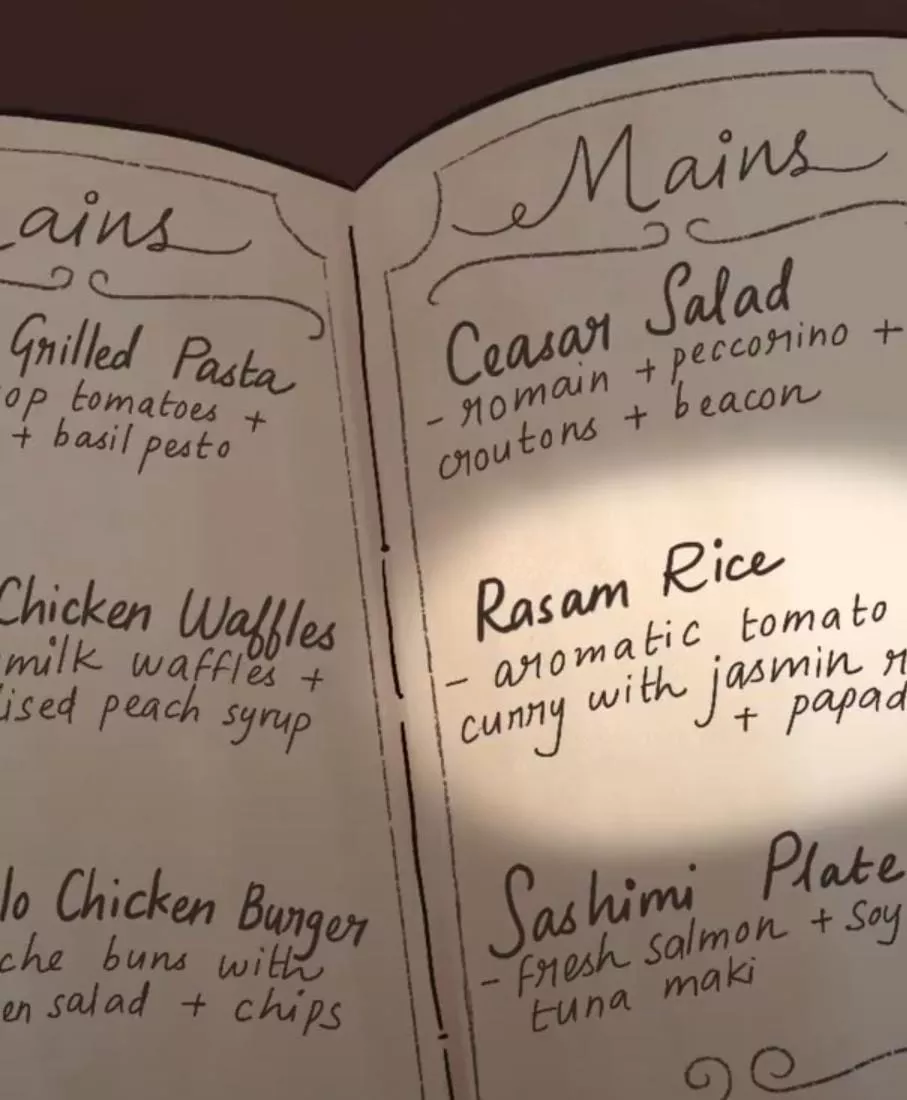 ains
Grilled Pasta
op tomatoes +
+ basil pesto
Chicken Waffles
milk waffles +
ised peach syrup
lo Chicken Burger
che buns with
en salad + chips
Mains
Ceasar Salad
- romain + peccorino +
croutons + beacon
Rasam Rice
- aromatic tomato
curry with jasmin r
+ papad
Sashimi Plate
- fresh salmon + soy
tuna maki